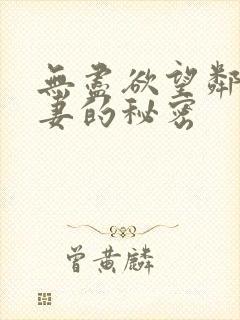 無盡欲望鄰
妻的秘密
曾黃麟